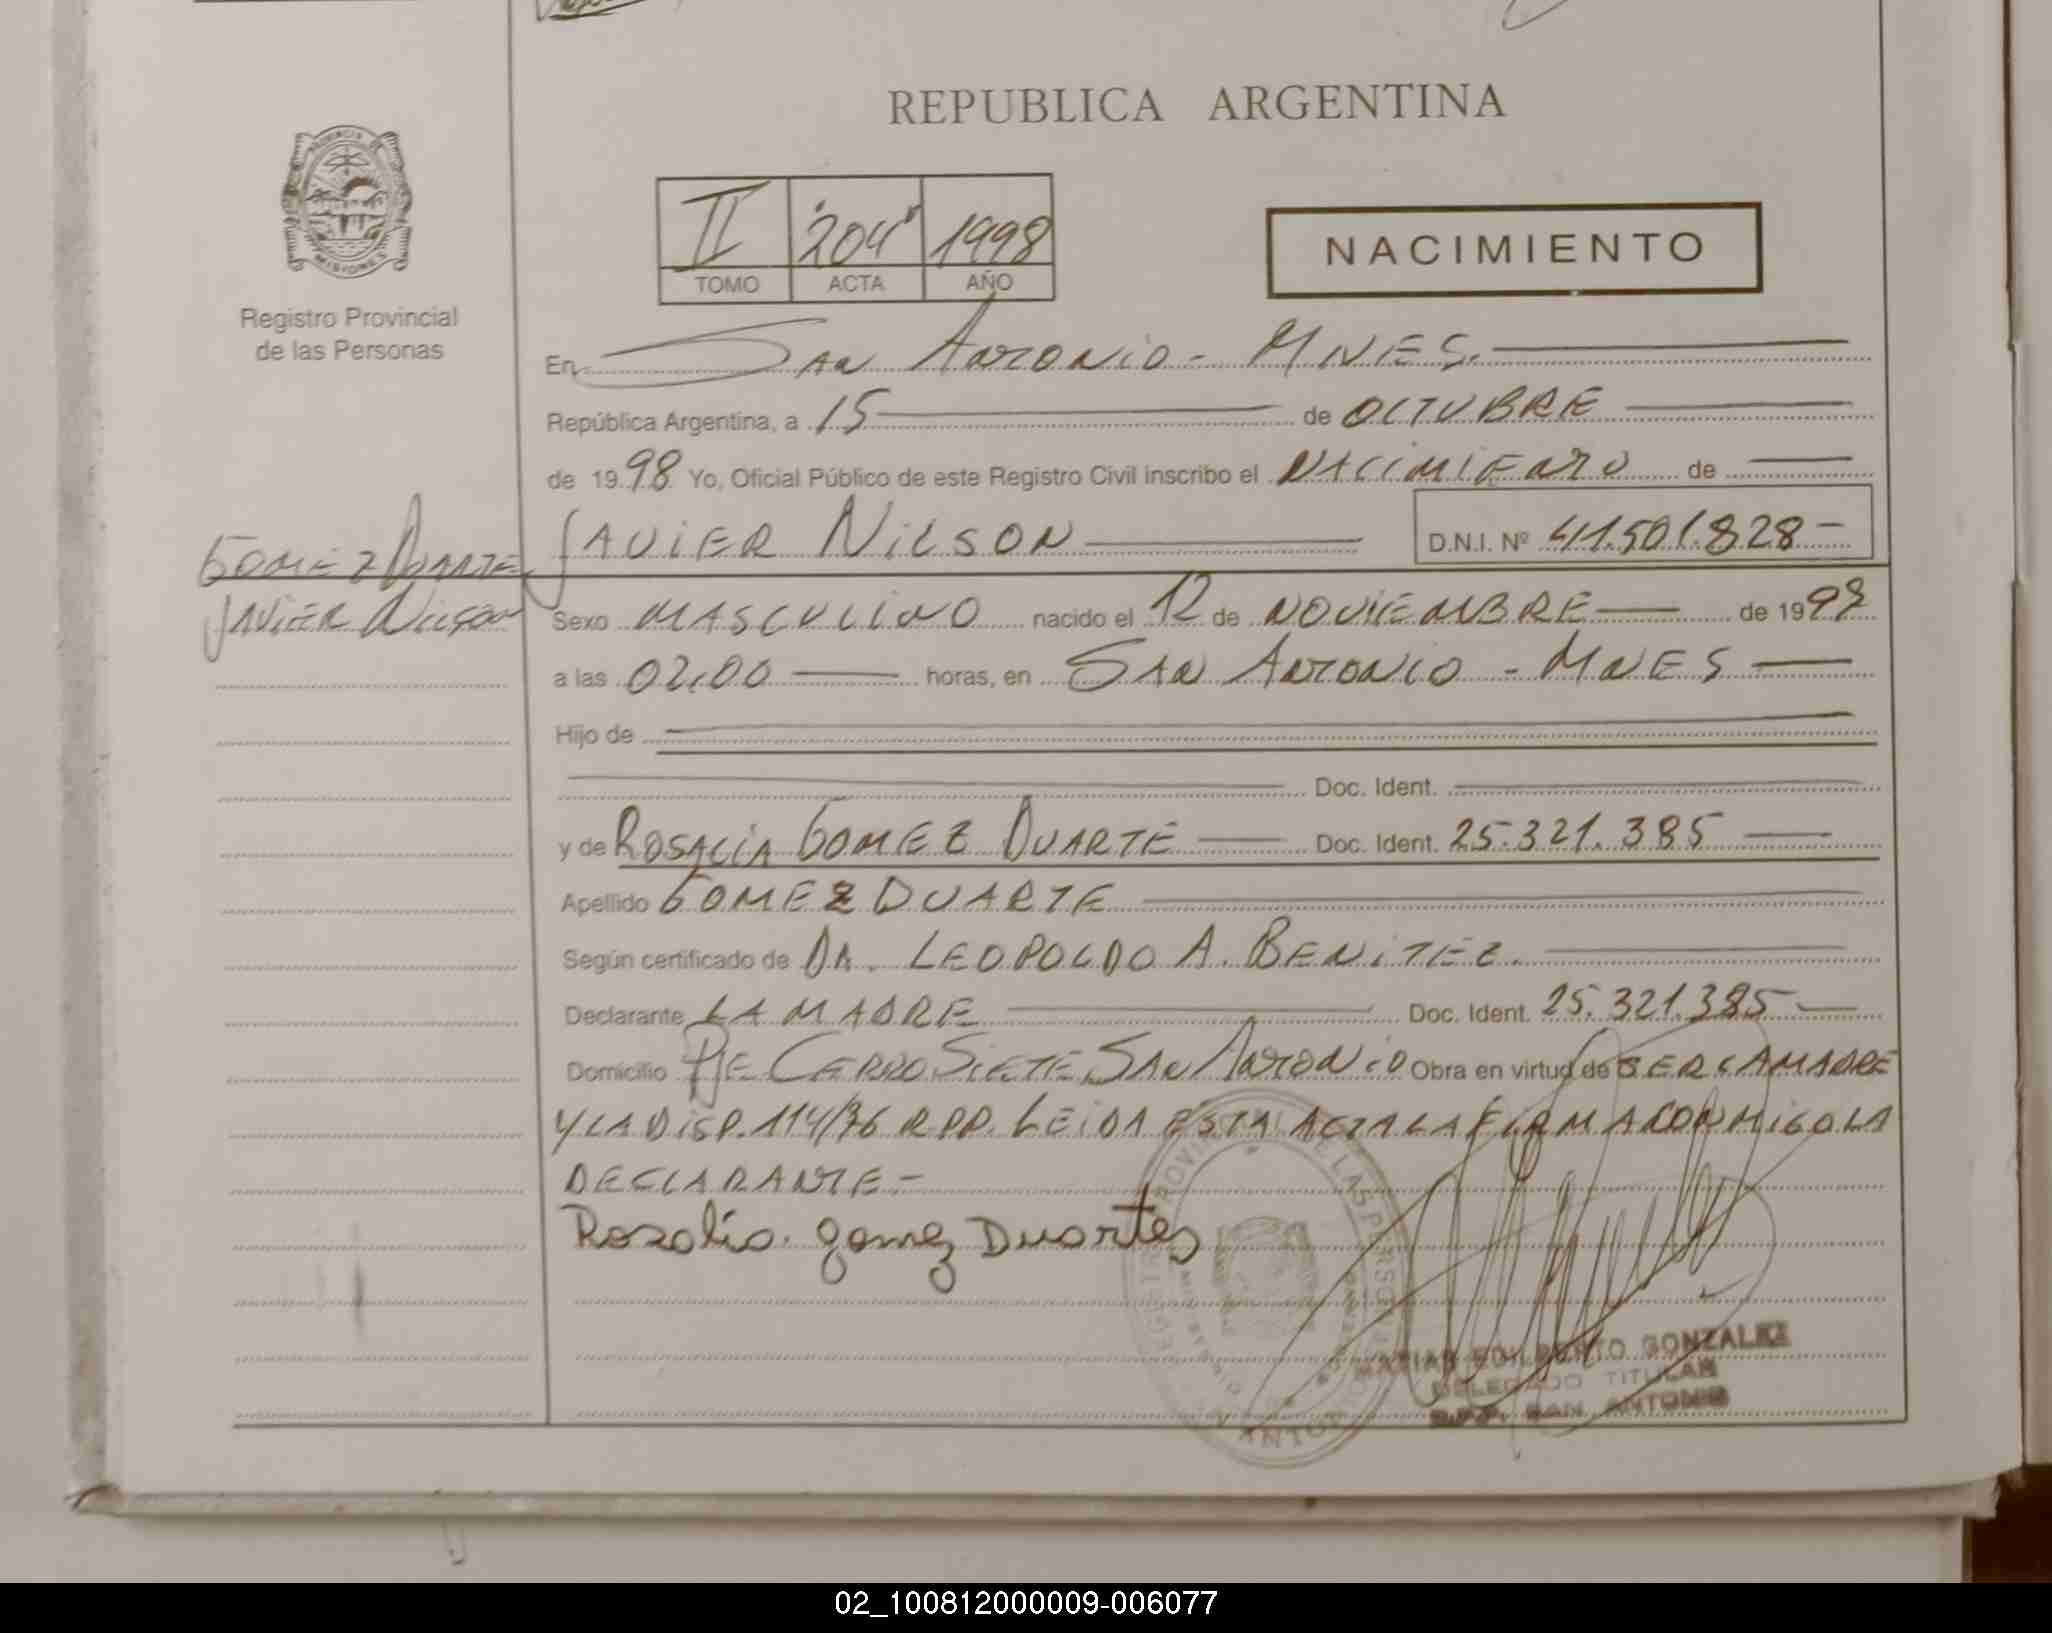 REPUBLICA ARGENTINA
PROVINCIA DE
MISIONES
Registro Provincial
de las Personas
II "204" 1998
TOMO ACTA AÑO
NACIMIENTO
En SAN ANTONIO - MNES.
República Argentina, a 15 de OCTUBRE
de 1998 Yo, Oficial Público de este Registro Civil inscribo el NACIMIENTO de
JAVIER NILSON D.N.I. Nº 41.501.828-
GOMEZ DUARTE
JAVIER NILSON
Sexo MASCULINO nacido el 12 de NOVIEMBRE de 19
a las 02,00 horas, en SAN ANTONIO - MNES
Hijo de
Doc. Ident.
y de ROSALÍA GOMEZ DUARTE Doc. Ident. 25.321.385
Apellido GOMEZ DUARTE
Según certificado de DR. LEOPOLDO A. BENITEZ.
Declarante LA MADRE Doc. Ident. 25.321.385
Domicilio PJE CERRO SIETE SAN ANTONIO Obra en virtud de SER LA MADRE
Y LA DISP. 114/76 RPP. LEIDA ESTA ACTA LA FIRMA CONMIGO LA
DECLARANTE.-
Rosalia. gomez Duartes
MATIAS EDILBERTO GONZALEZ
DELEGADO TITULAR
R.P.P. SAN ANTONIO
02_100812000009-006077